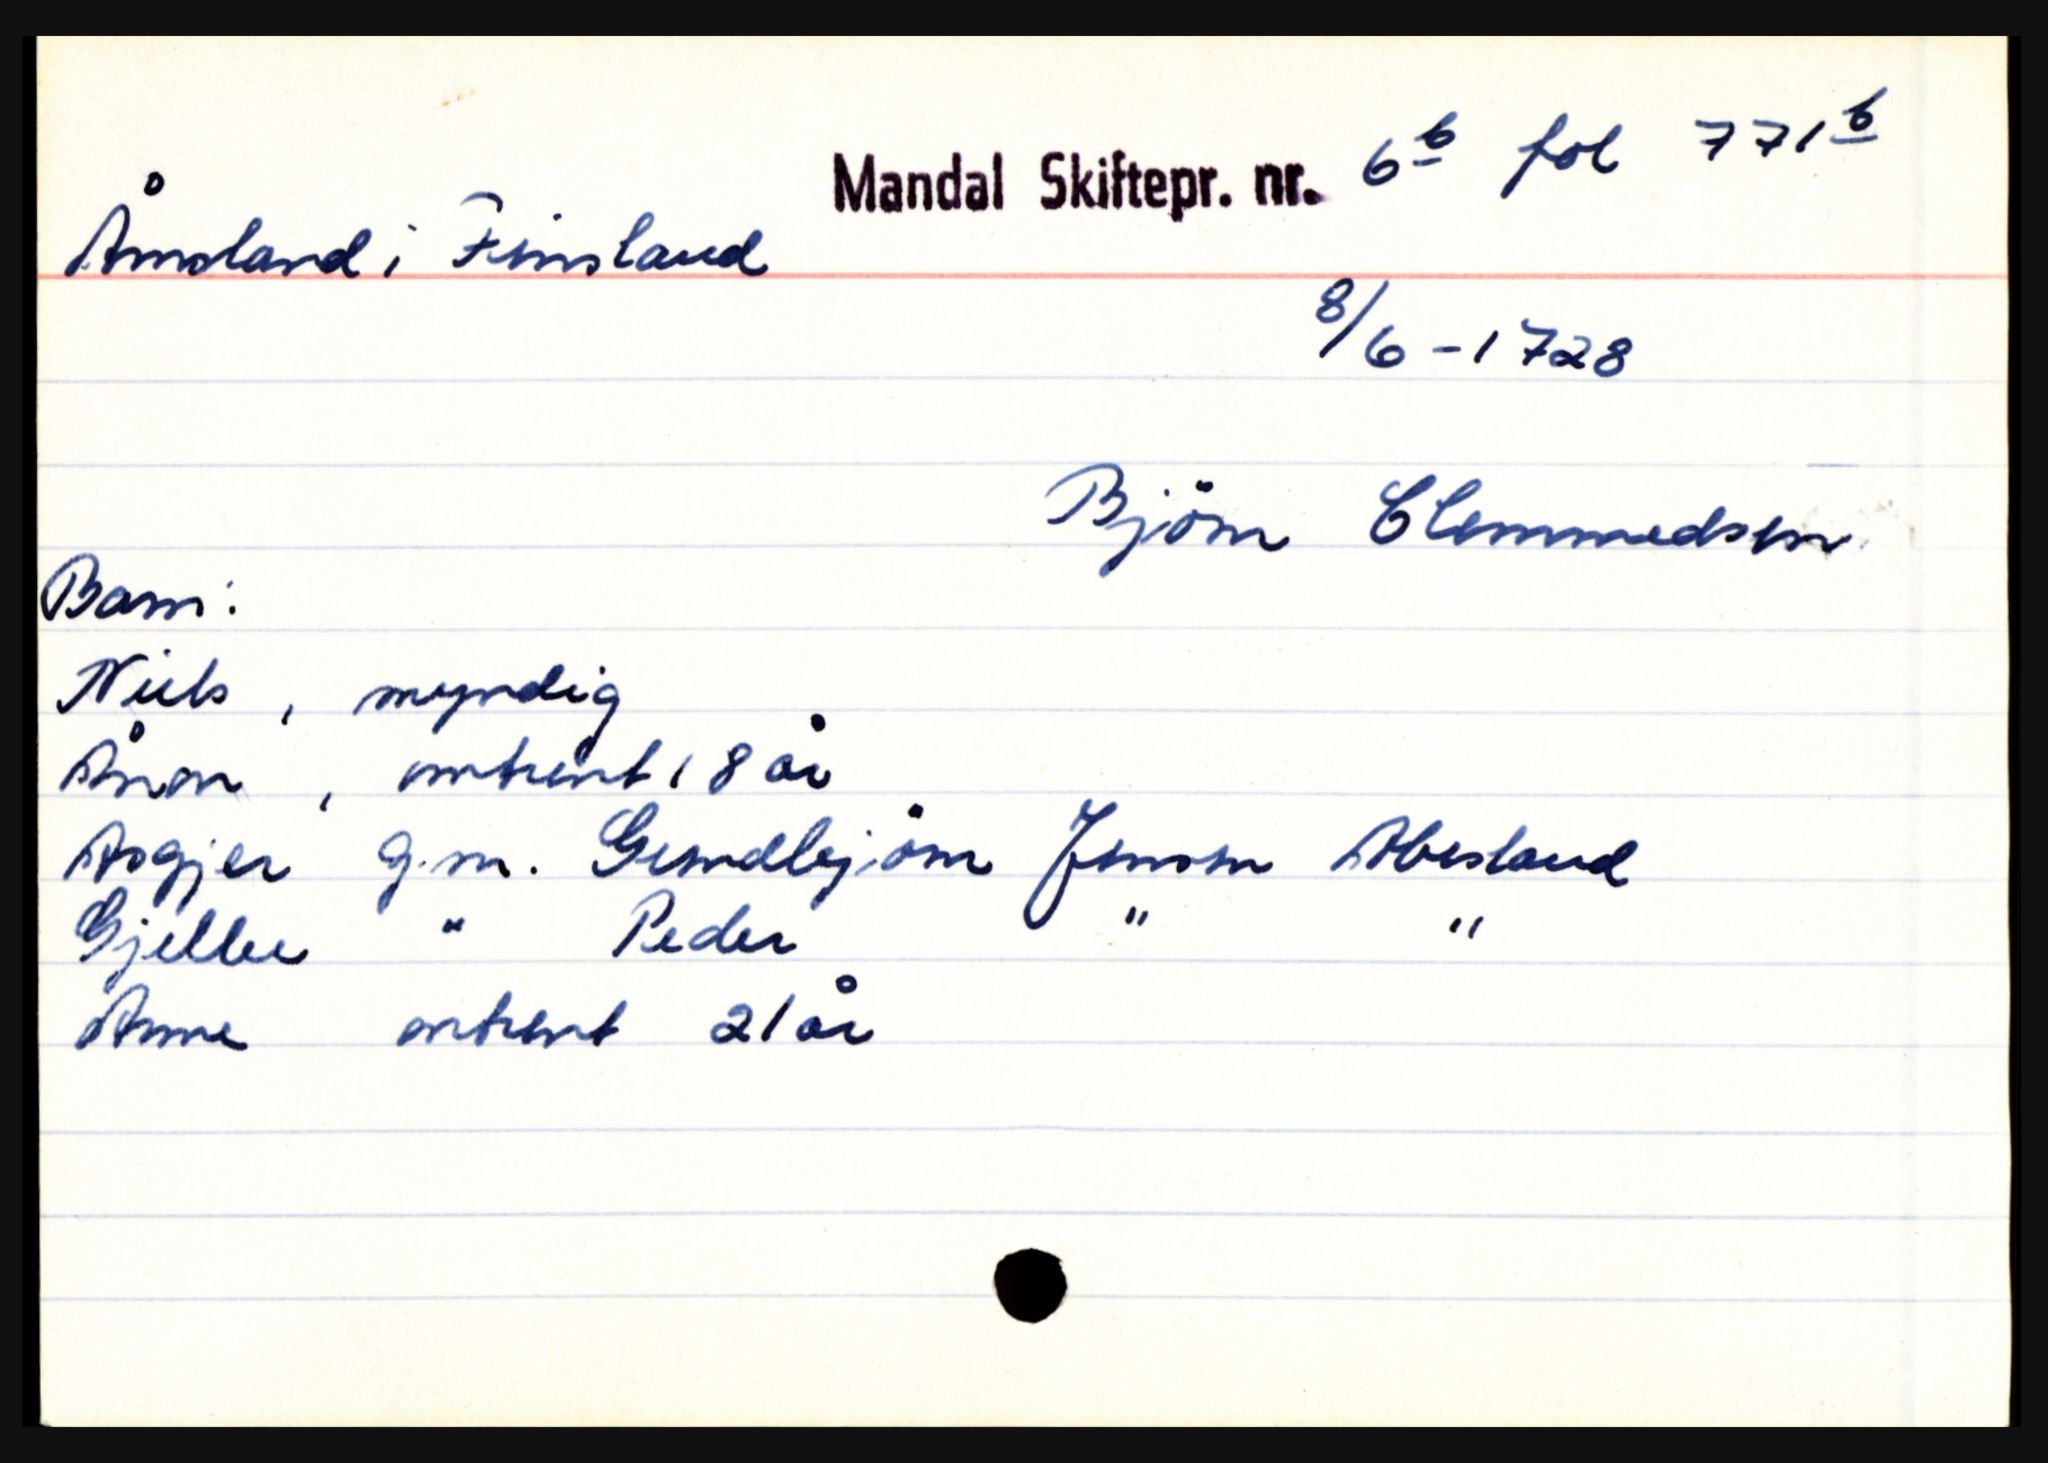 Mandal Skiftepr. nr. 6b fol 771b
Åmsland i Finsland
8/6-1728
Bjørn Clemmedsen
Barn:
Niels, myndig
Ånon, omtrent 18 år
Asgjer g.m. Gundbjörn Jensen Abesland
Gjelbee " Peder " "
Anne omtrent 21 år